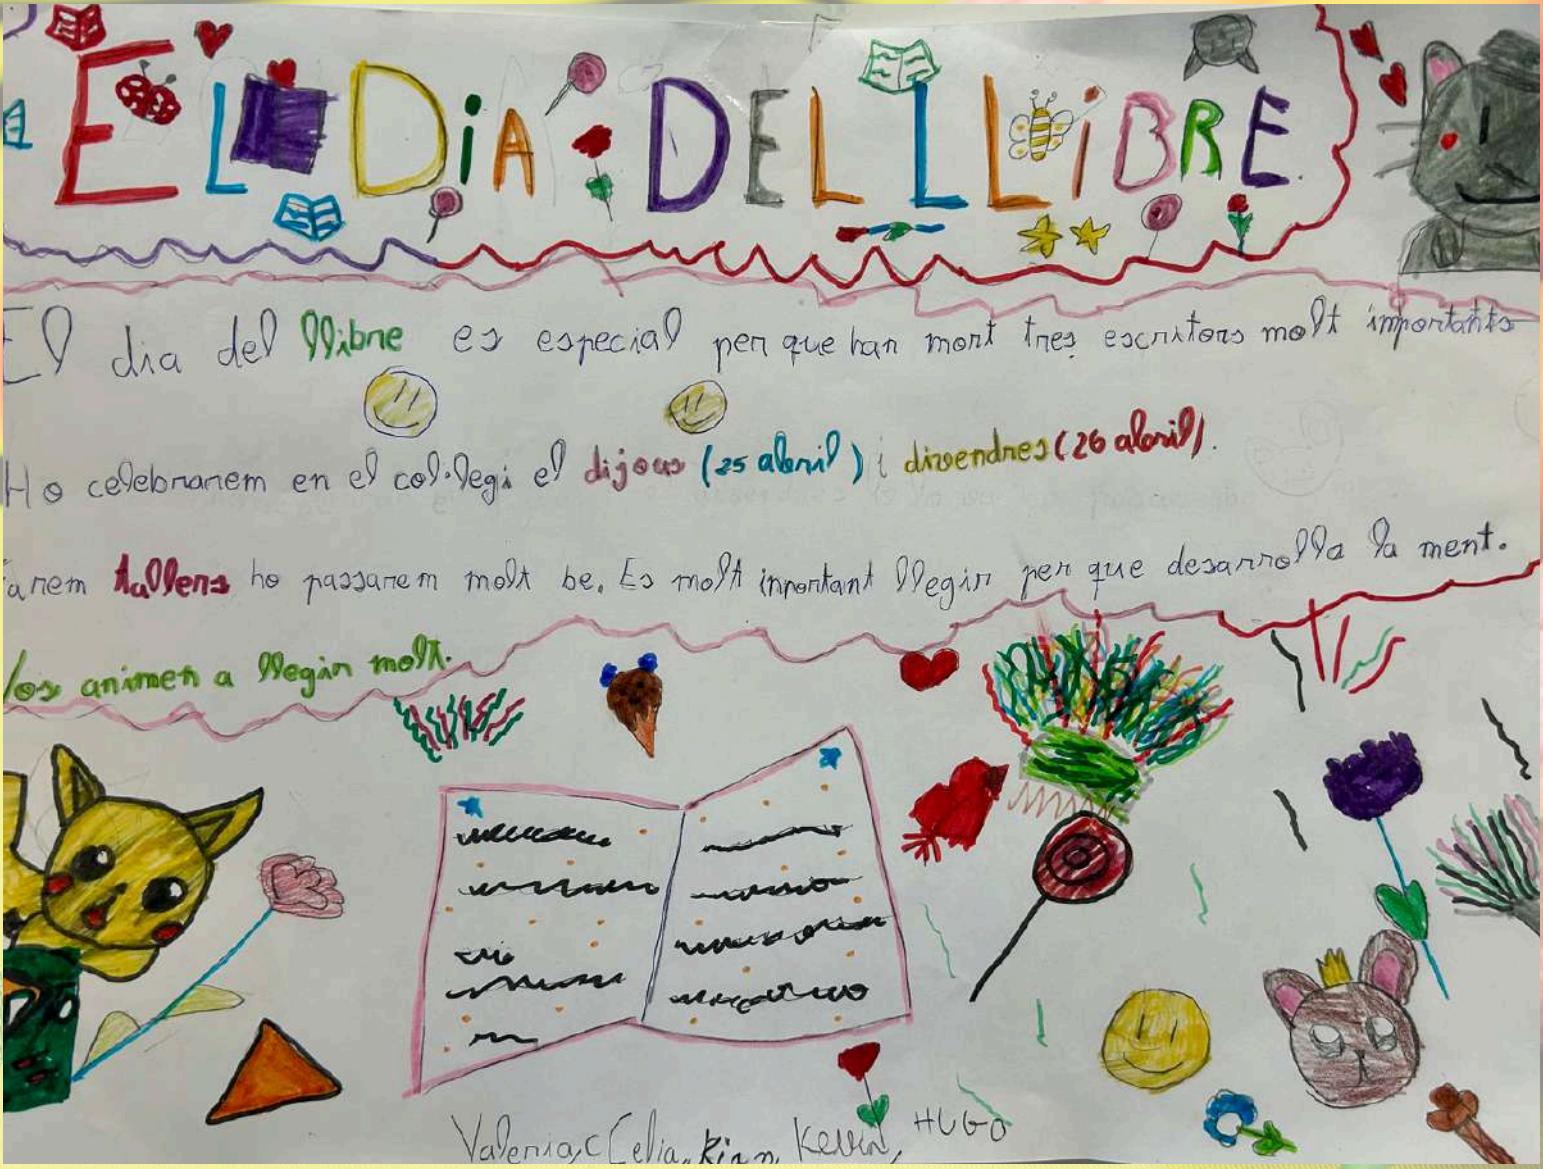 EL DiA DEL LLiBRE
El dia del llibre es especial per que han mort tres escritors molt importants
Ho celebrarem en el col·legi el dijous (25 abril) i divendres (26 abril).
Farem tallers ho passarem molt be. Es molt inportant llegir per que desarrolla la ment.
Vos animen a llegir molt.
Valeria, Celia, Kian, Kevin, HUGO